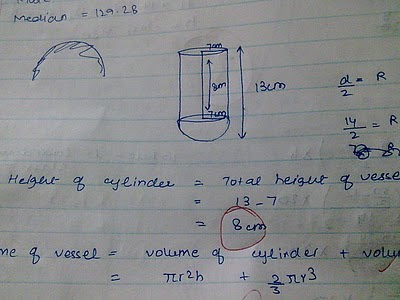 Median = 129.28
7cm
8m
13cm
7cm
d/2 = R
14/2 = R
Height of cylinder = Total height of vesse
= 13 - 7
= 8cm
me of vessel = volume of cylinder + volu
= πr²h + 2/3 πr³